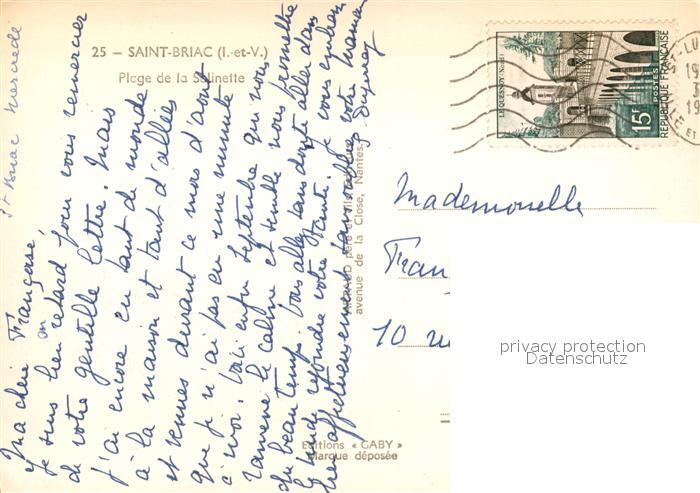 25 — SAINT-BRIAC (I.-et-V.)
Plage de la Salinette
St Briac Mercredi
Ma chère Françoise,
Je suis bien en retard pour vous remercier
de votre gentille lettre. Mais
j'ai encore eu tant de monde
à la maison et tant d'allées
et venues durant ce mois d'août
que je n'ai pas eu une minute
à moi. Voici enfin septembre qui nous
ramène le calme et semble nous promettre
du beau temps. Vous allez sans doute aller dans
le
votre
santé. Je vous embrasse
très affectueusement sans oublier votre maman
père et
avenue de la Close, Nantes.
Editions « GABY »
Marque déposée
LE QUESNOY (Nord)
15F
POSTES
REPUBLIQUE FRANÇAISE
Mademoiselle
Fran
10 ru
privacy protection
Datenschutz